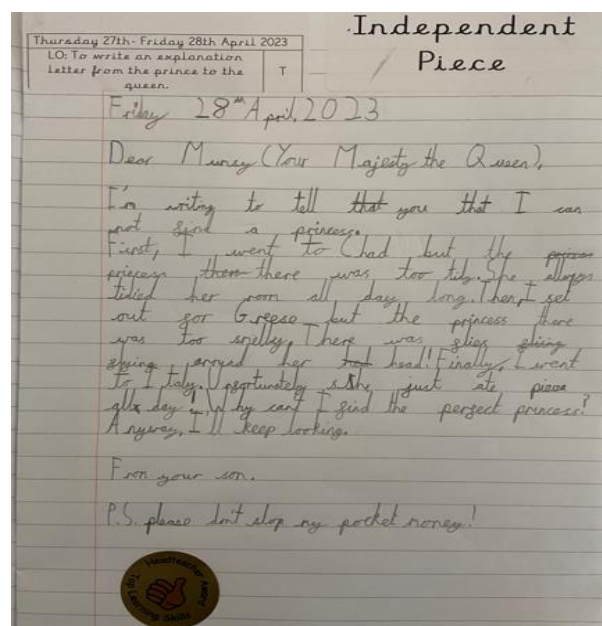 Independent
Piece
Thursday 27th - Friday 28th April 2023
LO: To write an explanation
letter from the prince to the
queen.
T
Friday 28th April, 2023
Dear Mumsy (Your Majesty the Queen),
I'm writing to tell that you that I can
not find a princess.
First, I went to Chad but the
princess there was too tidy. She
tidied her room all day long. Then, I set
out for Greese but the princess there
was too smelly. There was flies
flying around her head! Finally, I went
to Italy. she just ate
all day! Why can't I find the perfect princess?
Anyway, I'll keep looking.
From your son.
P.S. please don't stop my pocket money!
Headteacher Award
Top Learning Skills